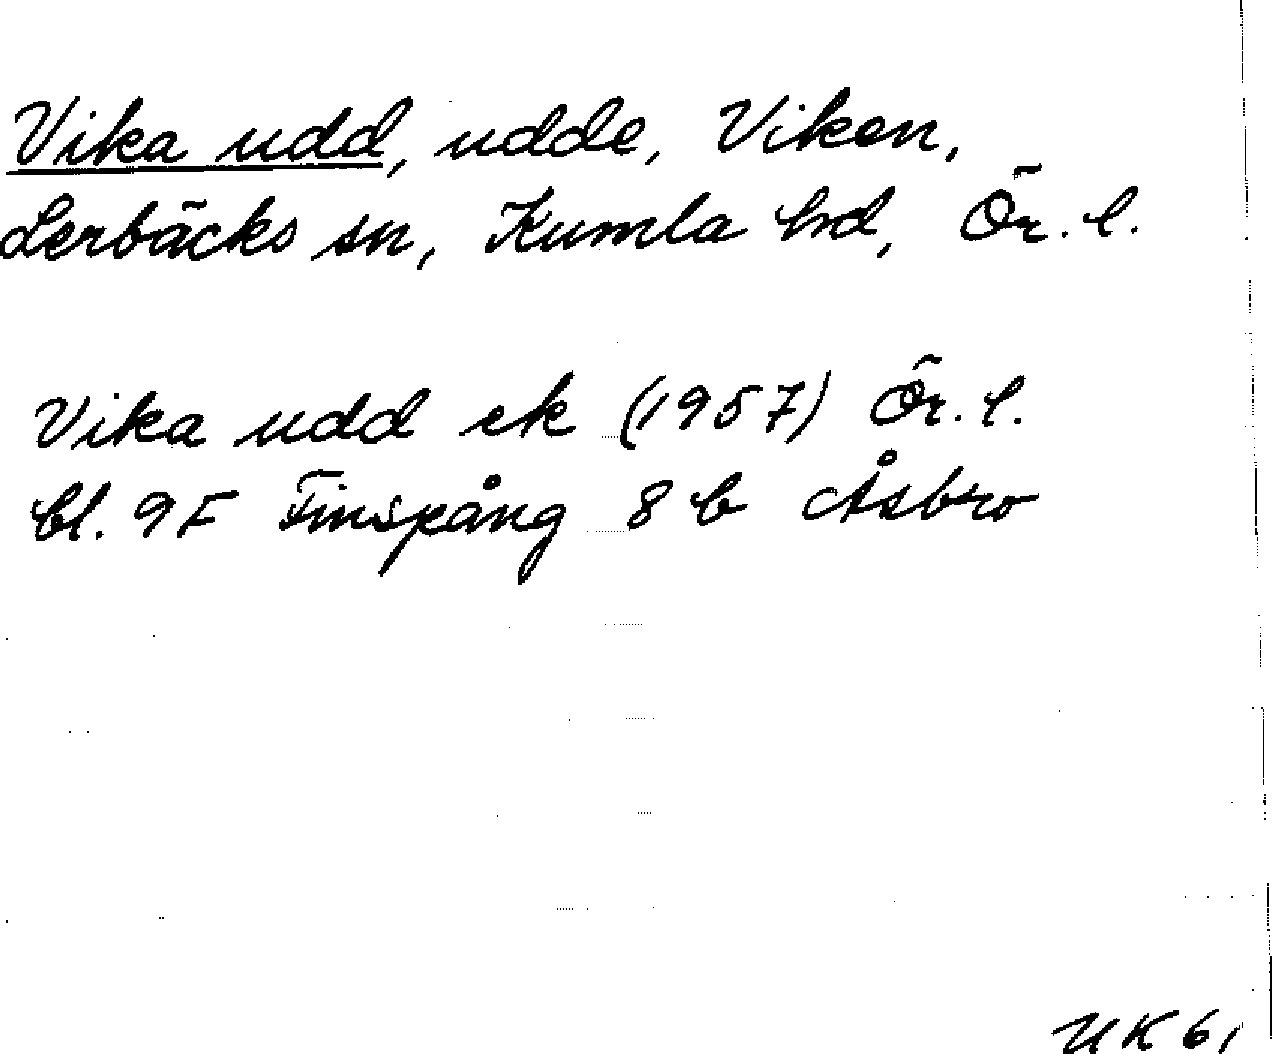 Vika udd, udde, Viken,
Lerbäcks sn, Kumla hd, Ör. l.
Vika udd ek (1957) Ör. l.
bl. 9F Finspång 8 b Åsbro
UK 61